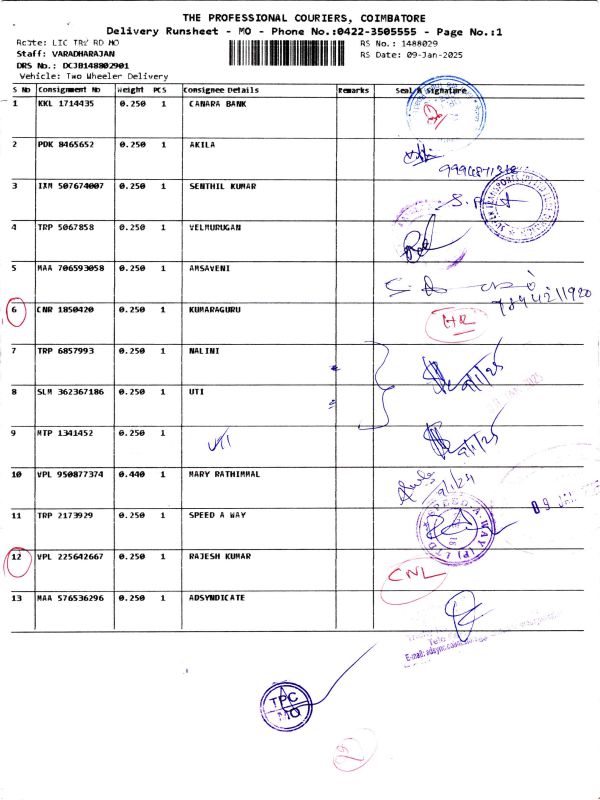 THE PROFESSIONAL COURIERS, COIMBATORE
Delivery Runsheet - MO - Phone No.:0422-3505555 - Page No.:1
Route: LIC TRV RD MO
RS No.: 1488029
Staff: VARADHARAJAN
RS Date: 09-Jan-2025
DRS No.: DCJB148802901
Vehicle: Two Wheeler Delivery
S No Consignment No Weight PCS Consignee Details Remarks Seal & Signature
1 KKL 1714435 0.250 1 CANARA BANK
2 PDK 8465652 0.250 1 AKILA
3 IXM 507674007 0.250 1 SENTHIL KUMAR
4 TRP 5067858 0.250 1 VELMURUGAN
5 MAA 706593058 0.250 1 AMSAVENI
6 CNR 1850420 0.250 1 KUMARAGURU
7 TRP 6857993 0.250 1 NALINI 9/1/25
8 SLM 362367186 0.250 1 UTI
9 MTP 1341452 0.250 1 UTI 9/1/25
10 VPL 950877374 0.440 1 MARY RATHIMMAL 9/1/24
11 TRP 2173929 0.250 1 SPEED A WAY
12 VPL 225642667 0.250 1 RAJESH KUMAR CNL
13 MAA 576536296 0.250 1 ADSYNDICATE
TPC
MO